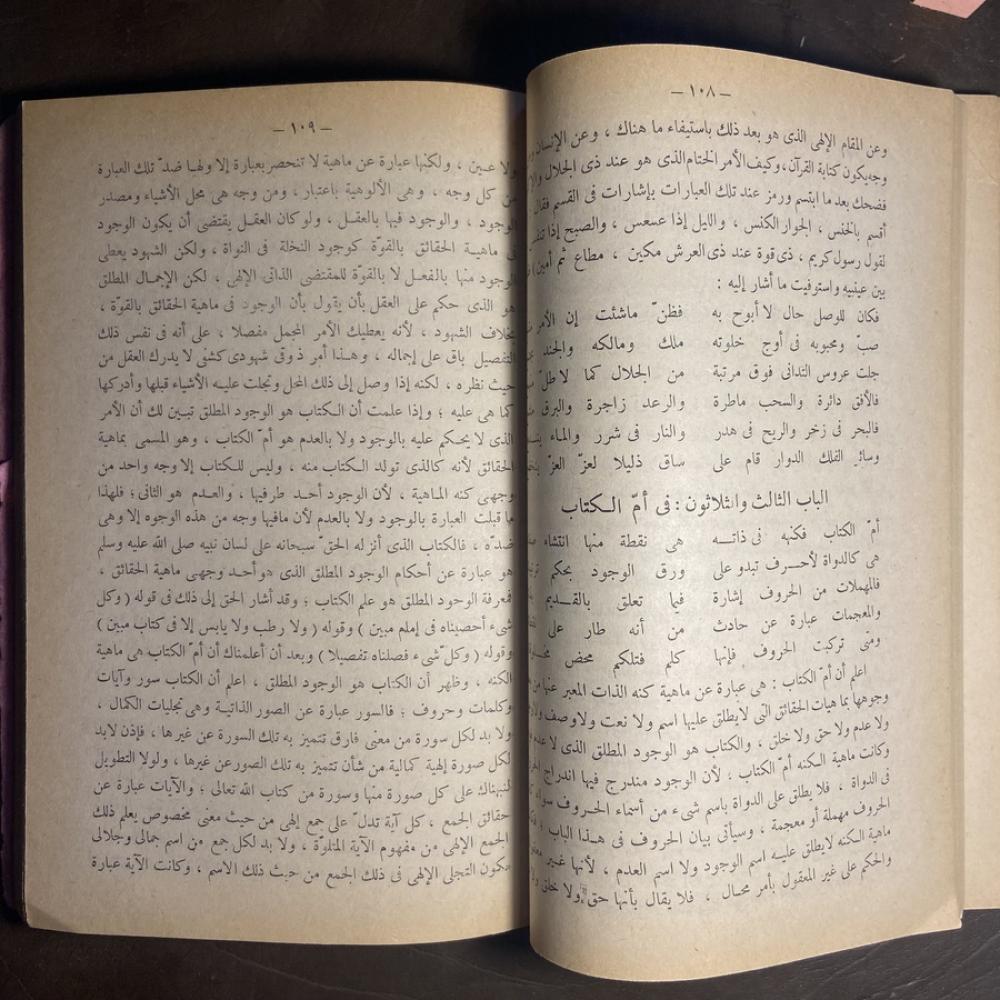 – ١٠٨ –
وعن المقام الإلهى الذى هو بعد ذلك باستيفاء ما هناك ، وعن الإنسان
وجه يكون كتابة القرآن، وكيف الأمر الختام الذى هو عند ذى الجلال
فضحك بعد ما ابتسم ورمز عند تلك العبارات بإشارات فى القسم فقال
أقسم بالخنس ، الجوار الكنس ، والليل إذا عسعس ، والصبح إذا
لقول رسول كريم ، ذى قوة عند ذى العرش مكين ، مطاع ثم أمين
بين عينيه واستوفيت ما أشار إليه :
فكان للوصل حال لا أبوح به فظنّ ماشئت إن الأمر
صبّ ومحبوبه فى أوج خلوته ملك ومالكه والجند
جلت عروس التدانى فوق مرتبة من الجلال كما لاطلّ
فالأفق دائرة والسحب ماطرة والرعد زاجرة والبرق
فالبحر فى زخر والريح فى هدر والنار فى شرر والماء
وسائر الفلك الدوار قام على ساق ذليلا لعزّ العزّ
الباب الثالث والثلاثون : فى أمّ الـكتاب
أمّ الكتاب فكنهه فى ذاتـــه هى نقطة منها انتشاء
هى كالدواة لأحــرف تبدو على ورق الوجود بحكم
فالمهملات من الحروف إشارة فيما تعلق بالقــديم
والمعجمات عبارة عن حادث من أنه طار على
ومتى تركبت الحروف فإنها كلم فتلكم محض
اعلم أن أمّ الكتاب : هى عبارة عن ماهية كنه الذات المعبر عنها من
وجوهها بماهيات الحقائق التى لايطلق عليها اسم ولا نعت ولاوصف
ولا عدم ولا حق ولا خلق ، والكتاب هو الوجود المطلق الذى لا عدم
وكانت ماهية الـكنه أمّ الكتاب ، لأن الوجود مندرج فيها اندراج
فى الدواة ، فلا يطلق على الدواة باسم شىء من أسماء الحـروف سواء
الحروف مهملة أو معجمة ، وسيأتى بيان الحروف فى هـذا الباب ؛
ماهية الـكنه لايطلق عليـه اسم الوجود ولا اسم العدم ، لأنها غـير
والحكم على غير المعقول بأمر محـال ، فلا يقال بأنها حق ولا خلق
– ١٠٩ –
ولا عـين ، ولـكنها عبارة عن ماهية لا تنحصر بعبارة إلا ولهـا ضدّ تلك العبارة
من كل وجه ، وهى الألوهية باعتبار ، ومن وجه هى محل الأشياء ومصدر
الوجود ، والوجود فيها بالعقـل ، ولو كان العقـل يقتضى أن يكون الوجود
فى ماهيـة الحقائق بالقوّة كوجود النخلة فى النواة ، ولكن الشهود يعطى
الوجود منها بالفعـل لا بالقوّة للمقتضى الذاتى الإلهى ، لكن الإجمال المطلق
هو الذى حكم على العقل بأن يقول بأن الوجود فى ماهية الحقائق بالقوّة ،
بخلاف الشهود ، لأنه يعطيك الأمر المجمل مفصلا ، على أنه فى نفس ذلك
التفصيل باق على إجماله ، وهـذا أمر ذوقى شهودى كشفى لا يدرك العقل من
حيث نظره ، لكنه إذا وصل إلى ذلك المحل وتجلت عليـه الأشياء قبلها وأدركها
كما هى عليه ؛ وإذا علمت أن الـكتاب هو الوجود المطلق تبـين لك أن الأمر
الذى لا يحـكم عليه بالوجود ولا بالعدم هو أمّ الكتاب ، وهو المسمى بماهية
الحقائق لأنه كالذى تولد الـكتاب منه ، وليس للـكتاب إلا وجه واحد من
وجهى كنه المـاهية ، لأن الوجود أحـد طرفيها ، والعـدم هو الثانى؛ فلهذا
ما قبلت العبارة بالوجود ولا بالعدم لأن مافيها وجه من هذه الوجوه إلا وهى
ضدّه ، فالكتاب الذى أنزله الحقّ سبحانه على لسان نبيه صلى الله عليه وسلم
هو عبارة عن أحكام الوجود المطلق الذى هو أحـد وجهى ماهية الحقائق ،
فمعرفة الوجود المطلق هو علم الكتاب ؛ وقد أشار الحق إلى ذلك فى قوله ( وكل
شىء أحصيناه فى إمام مبين ) وقوله ( ولا رطب ولا يابس إلا فى كتاب مبين )
وقوله ( وكلّ شىء فصلناه تفصيلا ) وبعد أن أعلمناك أن أمّ الكتاب هى ماهية
الكنه ، وظهر أن الكتاب هو الوجود المطلق ، اعلم أن الكتاب سور وآيات
وكلمات وحروف ؛ فالسور عبارة عن الصور الذاتيـة وهى تجليات الكمال ،
ولا بد لكل سورة من معنى فارق تتميز به تلك السورة عن غيرها ، فإذن لابد
لكل صورة إلهية كمالية من شأن تتميز به تلك الصور عن غيرها ، ولولا التطويل
لنبهناك على كل صورة منها وسورة من كتاب الله تعالى ؛ والآيات عبارة عن
حقائق الجمع ، كل آية تدلّ على جمع إلهى من حيث معنى مخصوص يعلم ذلك
الجمع الإلهى من مفهوم الآية المتلوّة ، ولا بد لكل جمع من اسم جمالى وجلالى
يكون التجلى الإلهى فى ذلك الجمع من حيث ذلك الاسم ، وكانت الآية عبارة